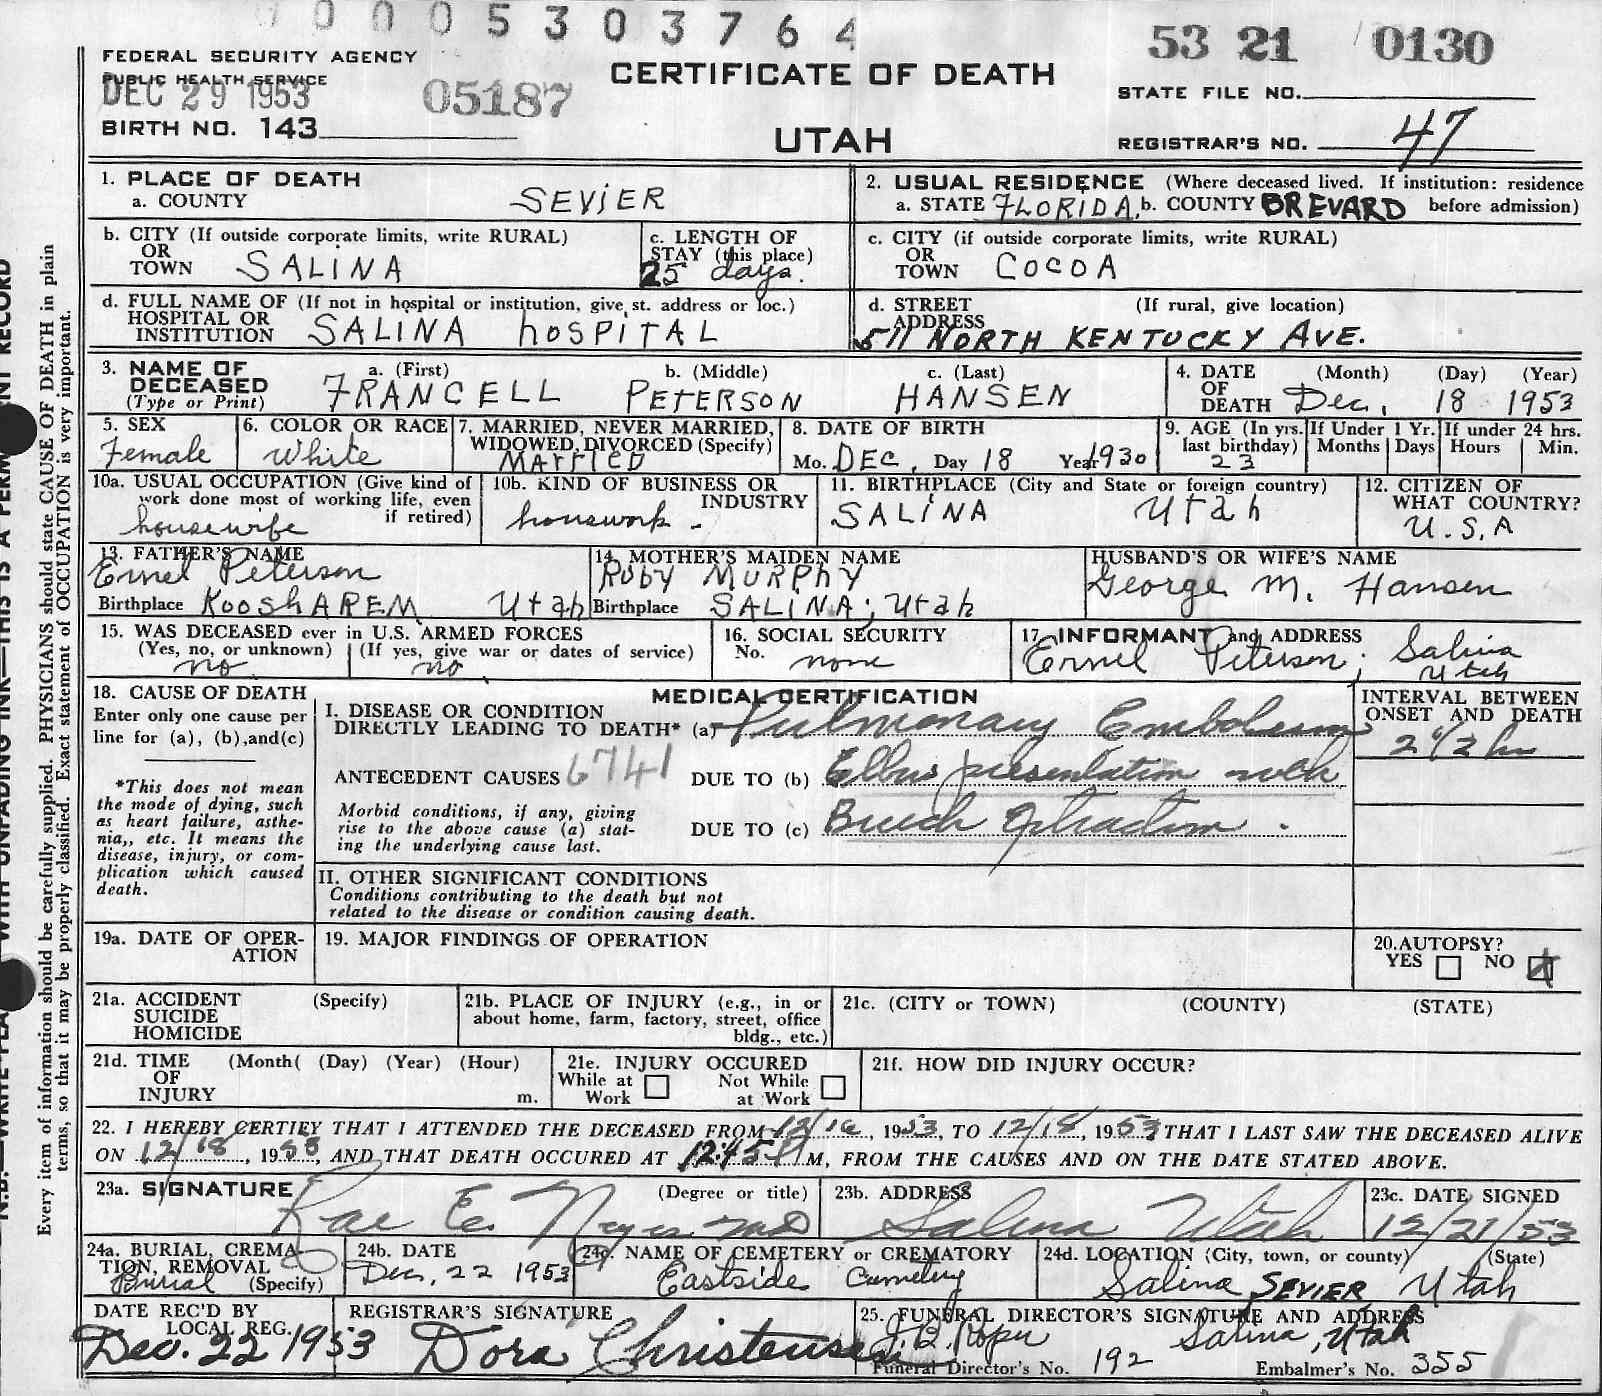 0005303764
53 21 0130
FEDERAL SECURITY AGENCY
PUBLIC HEALTH SERVICE
DEC 29 1953
05187
CERTIFICATE OF DEATH
UTAH
STATE FILE NO.
BIRTH NO. 143
REGISTRAR'S NO. 47
1. PLACE OF DEATH
a. COUNTY SEViER
2. USUAL RESIDENCE (Where deceased lived. If institution: residence before admission)
a. STATE FLORIDA, b. COUNTY BREVARD
b. CITY (If outside corporate limits, write RURAL)
OR
TOWN SALINA
c. LENGTH OF
STAY (this place)
25 days.
c. CITY (if outside corporate limits, write RURAL)
OR
TOWN COCOA
d. FULL NAME OF (If not in hospital or institution, give st. address or loc.)
HOSPITAL OR
INSTITUTION SALINA hOSPITAL
d. STREET (If rural, give location)
ADDRESS
511 NORTH KENTUCKY AVE.
3. NAME OF
DECEASED
(Type or Print)
a. (First) b. (Middle) c. (Last)
FRANCELL PETERSON HANSEN
4. DATE (Month) (Day) (Year)
OF
DEATH Dec, 18 1953
5. SEX
Female
6. COLOR OR RACE
White
7. MARRIED, NEVER MARRIED,
WIDOWED, DIVORCED (Specify)
MArried
8. DATE OF BIRTH
Mo. DEC, Day 18 Year 1930
9. AGE (In yrs. last birthday)
23
If Under 1 Yr.
Months Days
If under 24 hrs.
Hours Min.
10a. USUAL OCCUPATION (Give kind of
work done most of working life, even
if retired)
housewife
10b. KIND OF BUSINESS OR
INDUSTRY
houswork.
11. BIRTHPLACE (City and State or foreign country)
SALINA Utah
12. CITIZEN OF
WHAT COUNTRY?
U.S.A
13. FATHER'S NAME
Ernel Peterson
Birthplace KooshAREM Utah
14. MOTHER'S MAIDEN NAME
RUby MURPhy
Birthplace SALINA, Utah
HUSBAND'S OR WIFE'S NAME
George M. Hansen
15. WAS DECEASED ever in U.S. ARMED FORCES
(Yes, no, or unknown) (If yes, give war or dates of service)
no no
16. SOCIAL SECURITY
No. none
17. INFORMANT and ADDRESS
Ernel Peterson, Salina
Utah
18. CAUSE OF DEATH
Enter only one cause per
line for (a), (b),and(c)
*This does not mean
the mode of dying, such
as heart failure, asthe-
nia,, etc. It means the
disease, injury, or com-
plication which caused
death.
MEDICAL CERTIFICATION
I. DISEASE OR CONDITION
DIRECTLY LEADING TO DEATH* (a) Pulmonary Embolism
ANTECEDENT CAUSES 6741 DUE TO (b) Elbow presentation with
Morbid conditions, if any, giving
rise to the above cause (a) stat-
ing the underlying cause last.
DUE TO (c) Breech Extraction.
INTERVAL BETWEEN
ONSET AND DEATH
2 1/2 hr
II. OTHER SIGNIFICANT CONDITIONS
Conditions contributing to the death but not
related to the disease or condition causing death.
19a. DATE OF OPER-
ATION
19. MAJOR FINDINGS OF OPERATION
20. AUTOPSY?
YES NO X
21a. ACCIDENT (Specify)
SUICIDE
HOMICIDE
21b. PLACE OF INJURY (e.g., in or
about home, farm, factory, street, office
bldg., etc.)
21c. (CITY or TOWN) (COUNTY) (STATE)
21d. TIME (Month( (Day) (Year) (Hour)
OF
INJURY m.
21e. INJURY OCCURED
While at Work Not While at Work
21f. HOW DID INJURY OCCUR?
22. I HEREBY CERTIFY THAT I ATTENDED THE DECEASED FROM 12/16, 1953, TO 12/18, 1953, THAT I LAST SAW THE DECEASED ALIVE
ON 12/18, 1953, AND THAT DEATH OCCURED AT 12:45 M, FROM THE CAUSES AND ON THE DATE STATED ABOVE.
23a. SIGNATURE (Degree or title)
Rae E. Noyes MD
23b. ADDRESS
Salina Utah
23c. DATE SIGNED
12/21/53
24a. BURIAL, CREMA-
TION, REMOVAL
(Specify)
Burial
24b. DATE
Dec, 22 1953
24c. NAME OF CEMETERY or CREMATORY
Eastside Cemetery
24d. LOCATION (City, town, or county) (State)
Salina SEVIER Utah
DATE REC'D BY
LOCAL REG.
Dec. 22 1953
REGISTRAR'S SIGNATURE
Dora Christensen
25. FUNERAL DIRECTOR'S SIGNATURE AND ADDRESS
Salina, Utah
Funeral Director's No. 192 Embalmer's No. 355
Every item of information should be carefully supplied. PHYSICIANS should state CAUSE OF DEATH in plain
terms, so that it may be properly classified. Exact statement of OCCUPATION is very important.